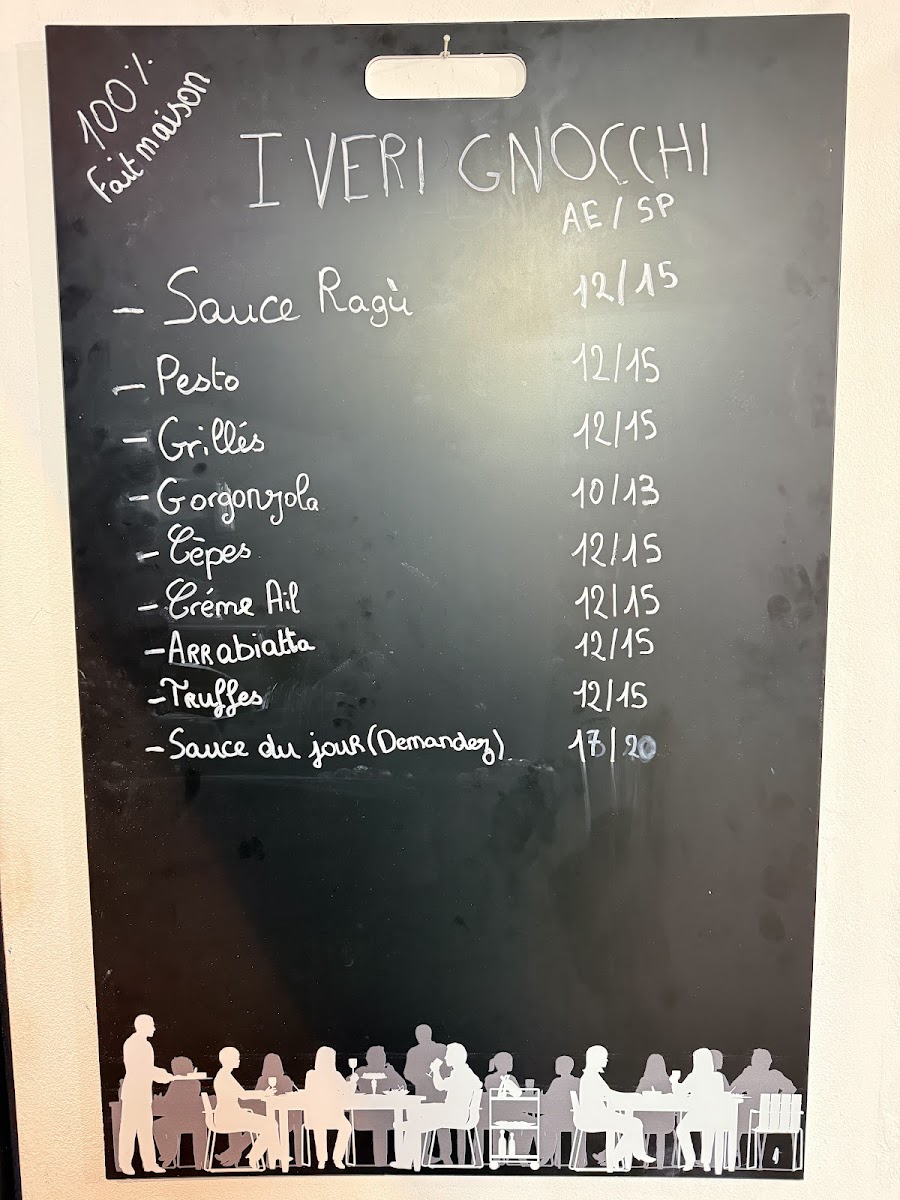 100%
Fait maison
I VERI GNOCCHI
AE / SP
- Sauce Ragù 12/15
- Pesto 12/15
- Grillés 12/15
- Gorgonzola 10/13
- Cèpes 12/15
- Créme Ail 12/15
- Arrabiatta 12/15
- Truffes 12/15
- Sauce du jour (Demandez) 17/20